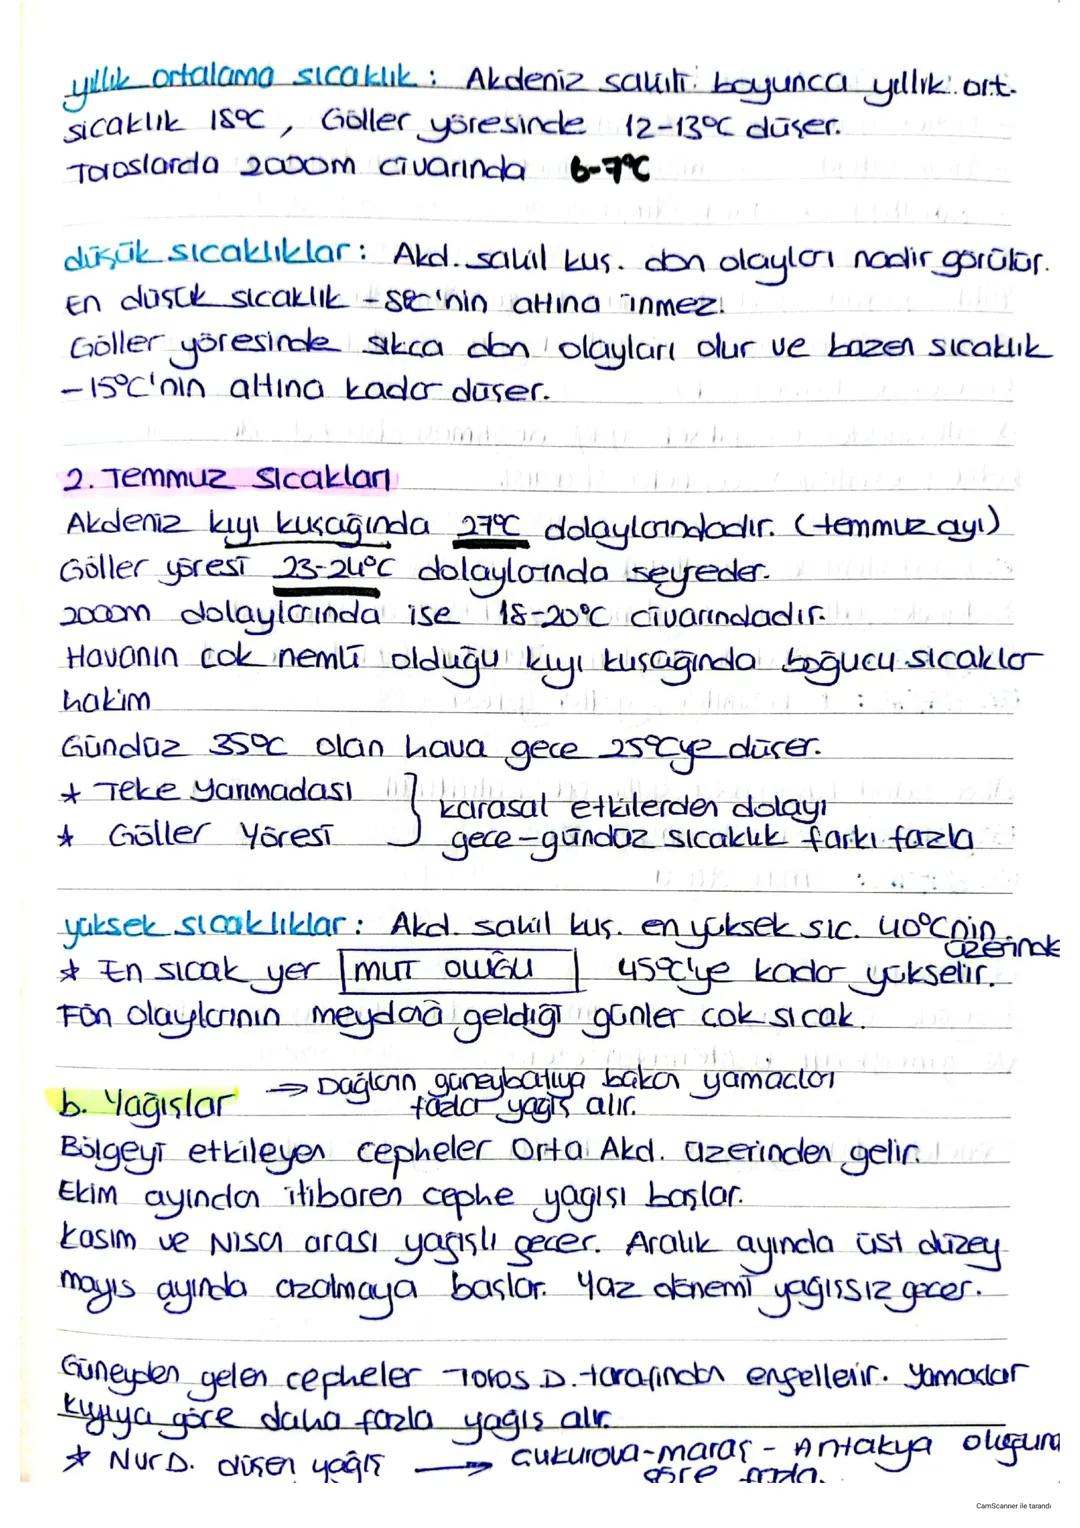 yıllık ortalama sıcaklık: Akdeniz sahili boyunca yıllık ort.
sıcaklık 18°C, Göller yöresinde 12-13°C düşer.
Toroslarda 2000m civarında 6-7°C
düşük sıcaklıklar: Akd. sahil kuş. don olayları nadir görülür.
En düşük sıcaklık -5°C'nin altına inmez!
Göller yöresinde sıkca don olayları olur ve bazen sıcaklık
-15°C'nin altına kadar düşer.
2. Temmuz Sıcakları
Akdeniz kıyı kuşağında 27°C dolaylarındadır. (temmuz ayı)
Göller yöresi 23-24°C dolaylarında seyreder.
2000m dolaylarında ise 18-20°C civarındadır.
Havanın cok nemli olduğu kıyı kuşağında boğucu sıcaklar
hakim
Gündüz 35°C olan hava gece 25°C'ye düşer.
* Teke Yarımadası
* Göller Yöresi
} karasal etkilerden dolayı
gece-gündüz sıcaklık farkı fazla
yüksek sıcaklıklar: Akd. sahil kuş. en yüksek sıc. 40°C'nin üzerinde
* En sıcak yer MUT OLUĞU 45°C'ye kadar yükselir.
Fön olaylarının meydana geldiği günler cok sıcak.
b. Yağışlar → Dağların güneybatıya bakan yamaçları
fazla yağış alır.
Bölgeyi etkileyen cepheler Orta Akd. üzerinden gelir.
Ekim ayından itibaren cephe yağışı başlar.
Kasım ve Nisan arası yağışlı geçer. Aralık ayında üst düzey
mayıs ayında azalmaya başlar. Yaz dönemi yağıssız geçer.
Güneyden gelen cepheler Toros D. tarafından engellenir. Yamaclar
kıyıya göre daha fazla yağış alır.
* Nur D. düşen yağış → Çukurova-maraş - Antakya oluğuna
göre fazla.
CamScanner ile tarandı